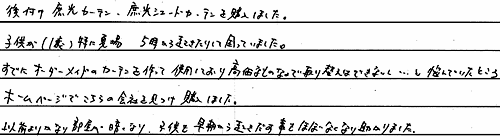 後付け 遮光カーテン、遮光シェードカーテンを購入しました。
子供が(1歳)特に夏場 5時から起きたりして困っていました。
すでにオーダーメイドのカーテンを作って使用しており高価なものなので取り替えはできないし…と悩んでいたところ
ホームページでこちらの会社を見つけ購入しました。
以前よりかなり部屋が暗くなり、子供も早朝から起きだす事もほぼなくなり助かりました。